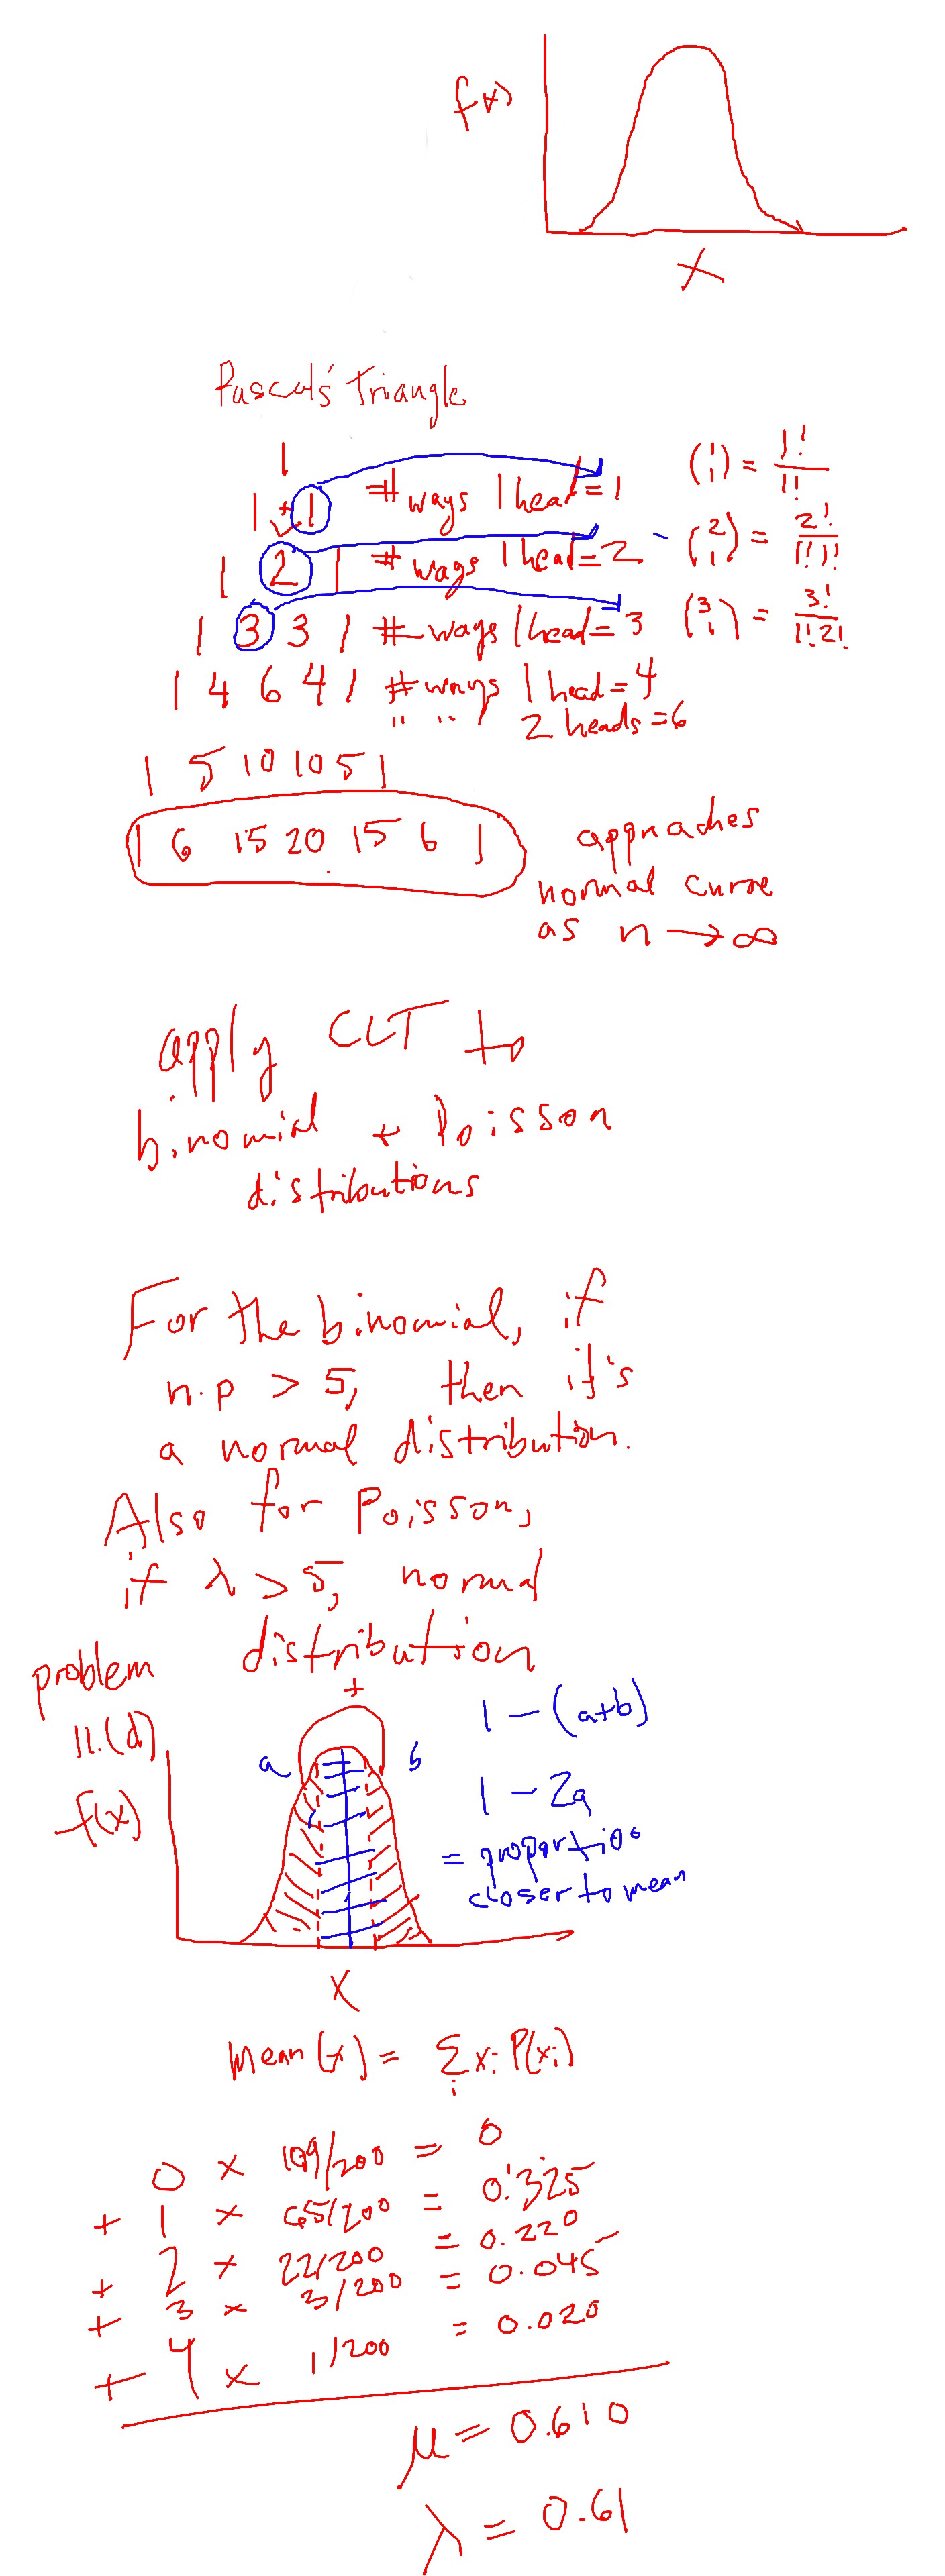 f(x)
X
Pascal's Triangle
1
1 + 1 # ways 1 head = 1 (1 1) = 1!/1!
1 2 1 # ways 1 head = 2 - (2 1) = 2!/1!1!
1 3 3 1 # ways 1 head = 3 (3 1) = 3!/1!2!
1 4 6 4 1 # ways 1 head = 4
" " 2 heads = 6
1 5 10 10 5 1
1 6 15 20 15 6 1
approaches
normal curve
as n → ∞
apply CLT to
binomial + Poisson
distributions
For the binomial, if
n·p > 5, then it's
a normal distribution.
Also for Poisson,
if λ > 5, normal
distribution
problem
11.(d)
f(x)
+
a b
1 - (a+b)
1 - 2a
= proportion
closer to mean
X
mean(x) = Σi xi P(xi)
0 x 109/200 = 0
+ 1 x 65/200 = 0.325
+ 2 x 22/200 = 0.220
+ 3 x 3/200 = 0.045
+ 4 x 1/200 = 0.020
μ = 0.610
λ = 0.61